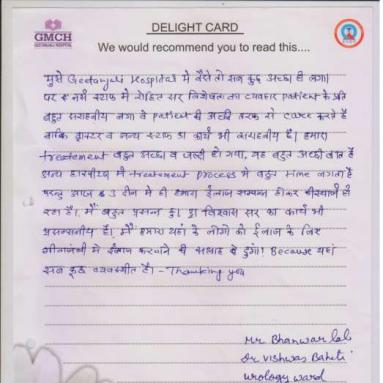 GMCH
GEETANJALI HOSPITAL
DELIGHT CARD
We would recommend you to read this....
मुझे Geetanjali Hospital में वैसे तो सब कुछ अच्छा ही लगा
पर नर्स स्टाफ में रोहित सर विशेषतः का व्यवहार patient के प्रति
बहुत सराहनीय लगा वे patient की अच्छी तरह से care करते है
बाकि डाक्टर व अन्य स्टाफ का कार्य भी सराहनीय है। हमारा
treatement बहुत अच्छा व जल्दी हो गया, यह बहुत अच्छी बात है
अन्य हास्पीटल में treatment process में बहुत time लगता है
परन्तु आज 3 दीन में ही हमारा ईलाज सम्पन्न होकर डीस्चार्ज हो
रहा है। मैं बहुत प्रसन्न हूं। डा विश्वास सर का कार्य भी
प्रसंसनीय है। मैं हमारे यहां के लोगो को ईलाज के लिए
गीतांजली में ईलाज करवाने की सलाह दूंगा। Because यहां
सब कुछ व्यवस्थीत है। - Thanking you
Mr Bhanwar lal
Dr Vishwas Baheti
Urology ward